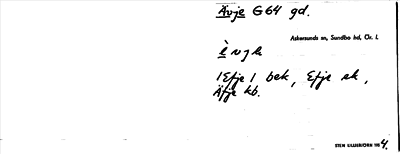 Ävje G64 gd.
Askersunds sn, Sundbo hd, Ör. l.
è v j e
/Efje/ bek, Efje sk,
Äfje kb.
STEN LILJEBJÖRN